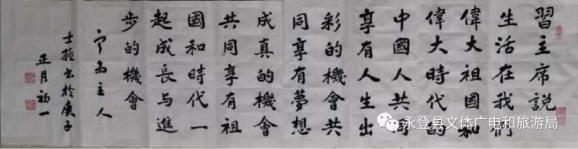 習主席說
生活在我們
偉大祖國和
偉大時代的
中國人共同
享有人生出
彩的機會共
同享有夢想
成真的機會
共同享有祖
國和時代一
起成長与進
步的機會
主人
書於庚子
正月初一
永登县文体广电和旅游局